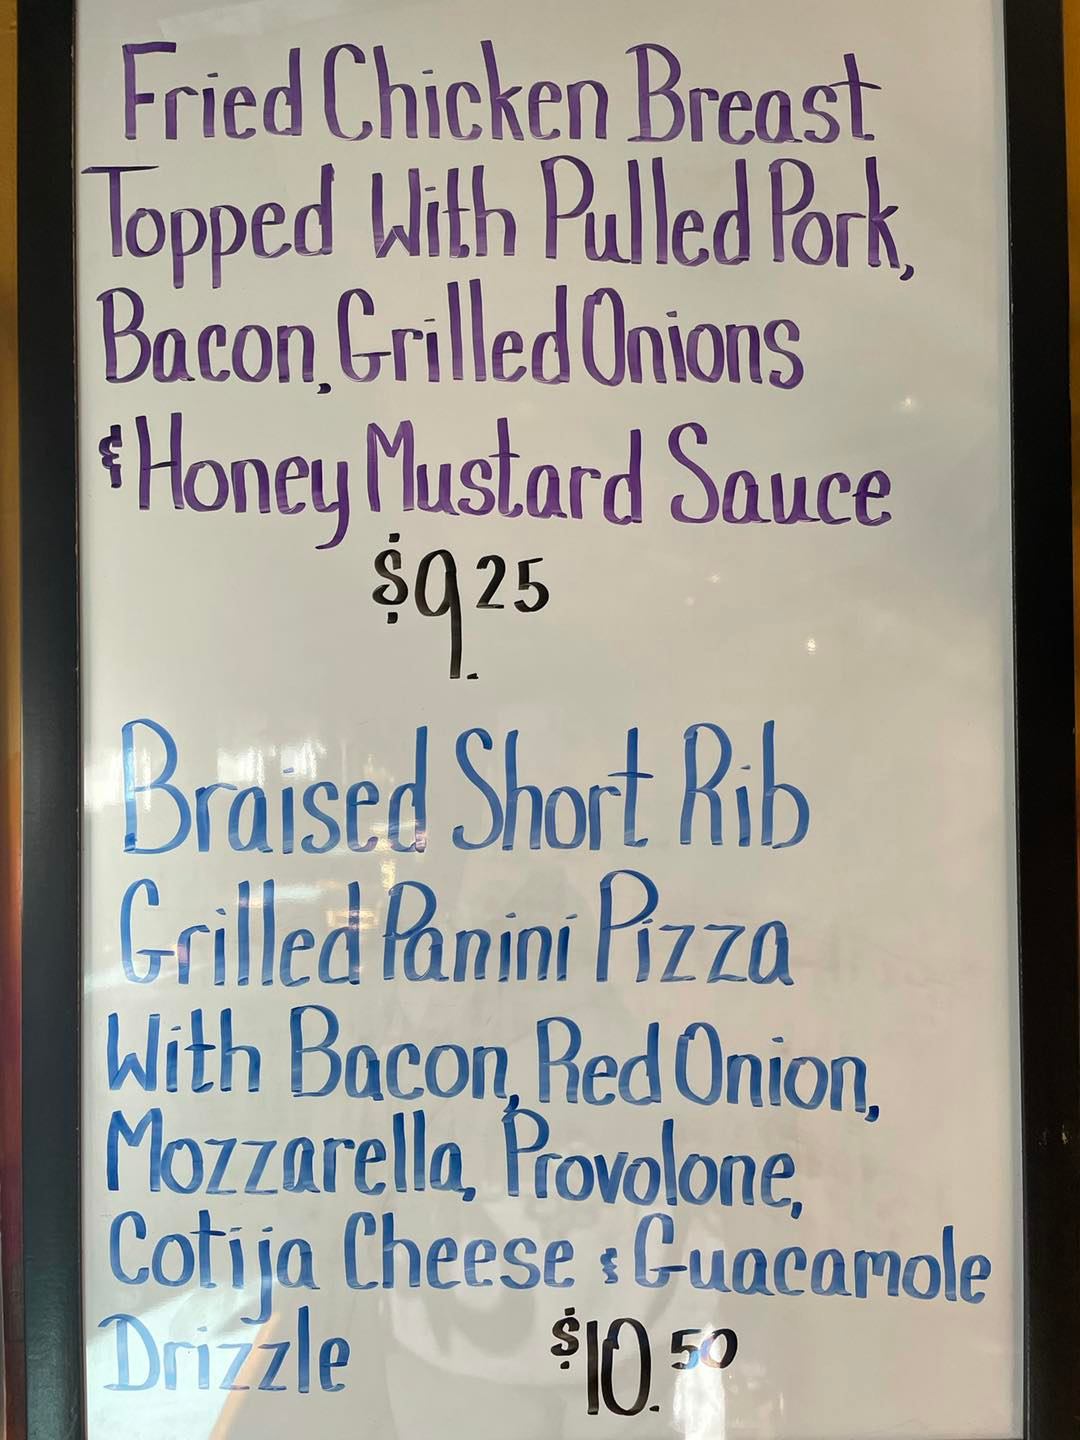 Fried Chicken Breast
Topped With Pulled Pork,
Bacon, Grilled Onions
& Honey Mustard Sauce
$9.25
Braised Short Rib
Grilled Panini Pizza
With Bacon, Red Onion,
Mozzarella, Provolone,
Cotija Cheese & Guacamole
Drizzle $10.50